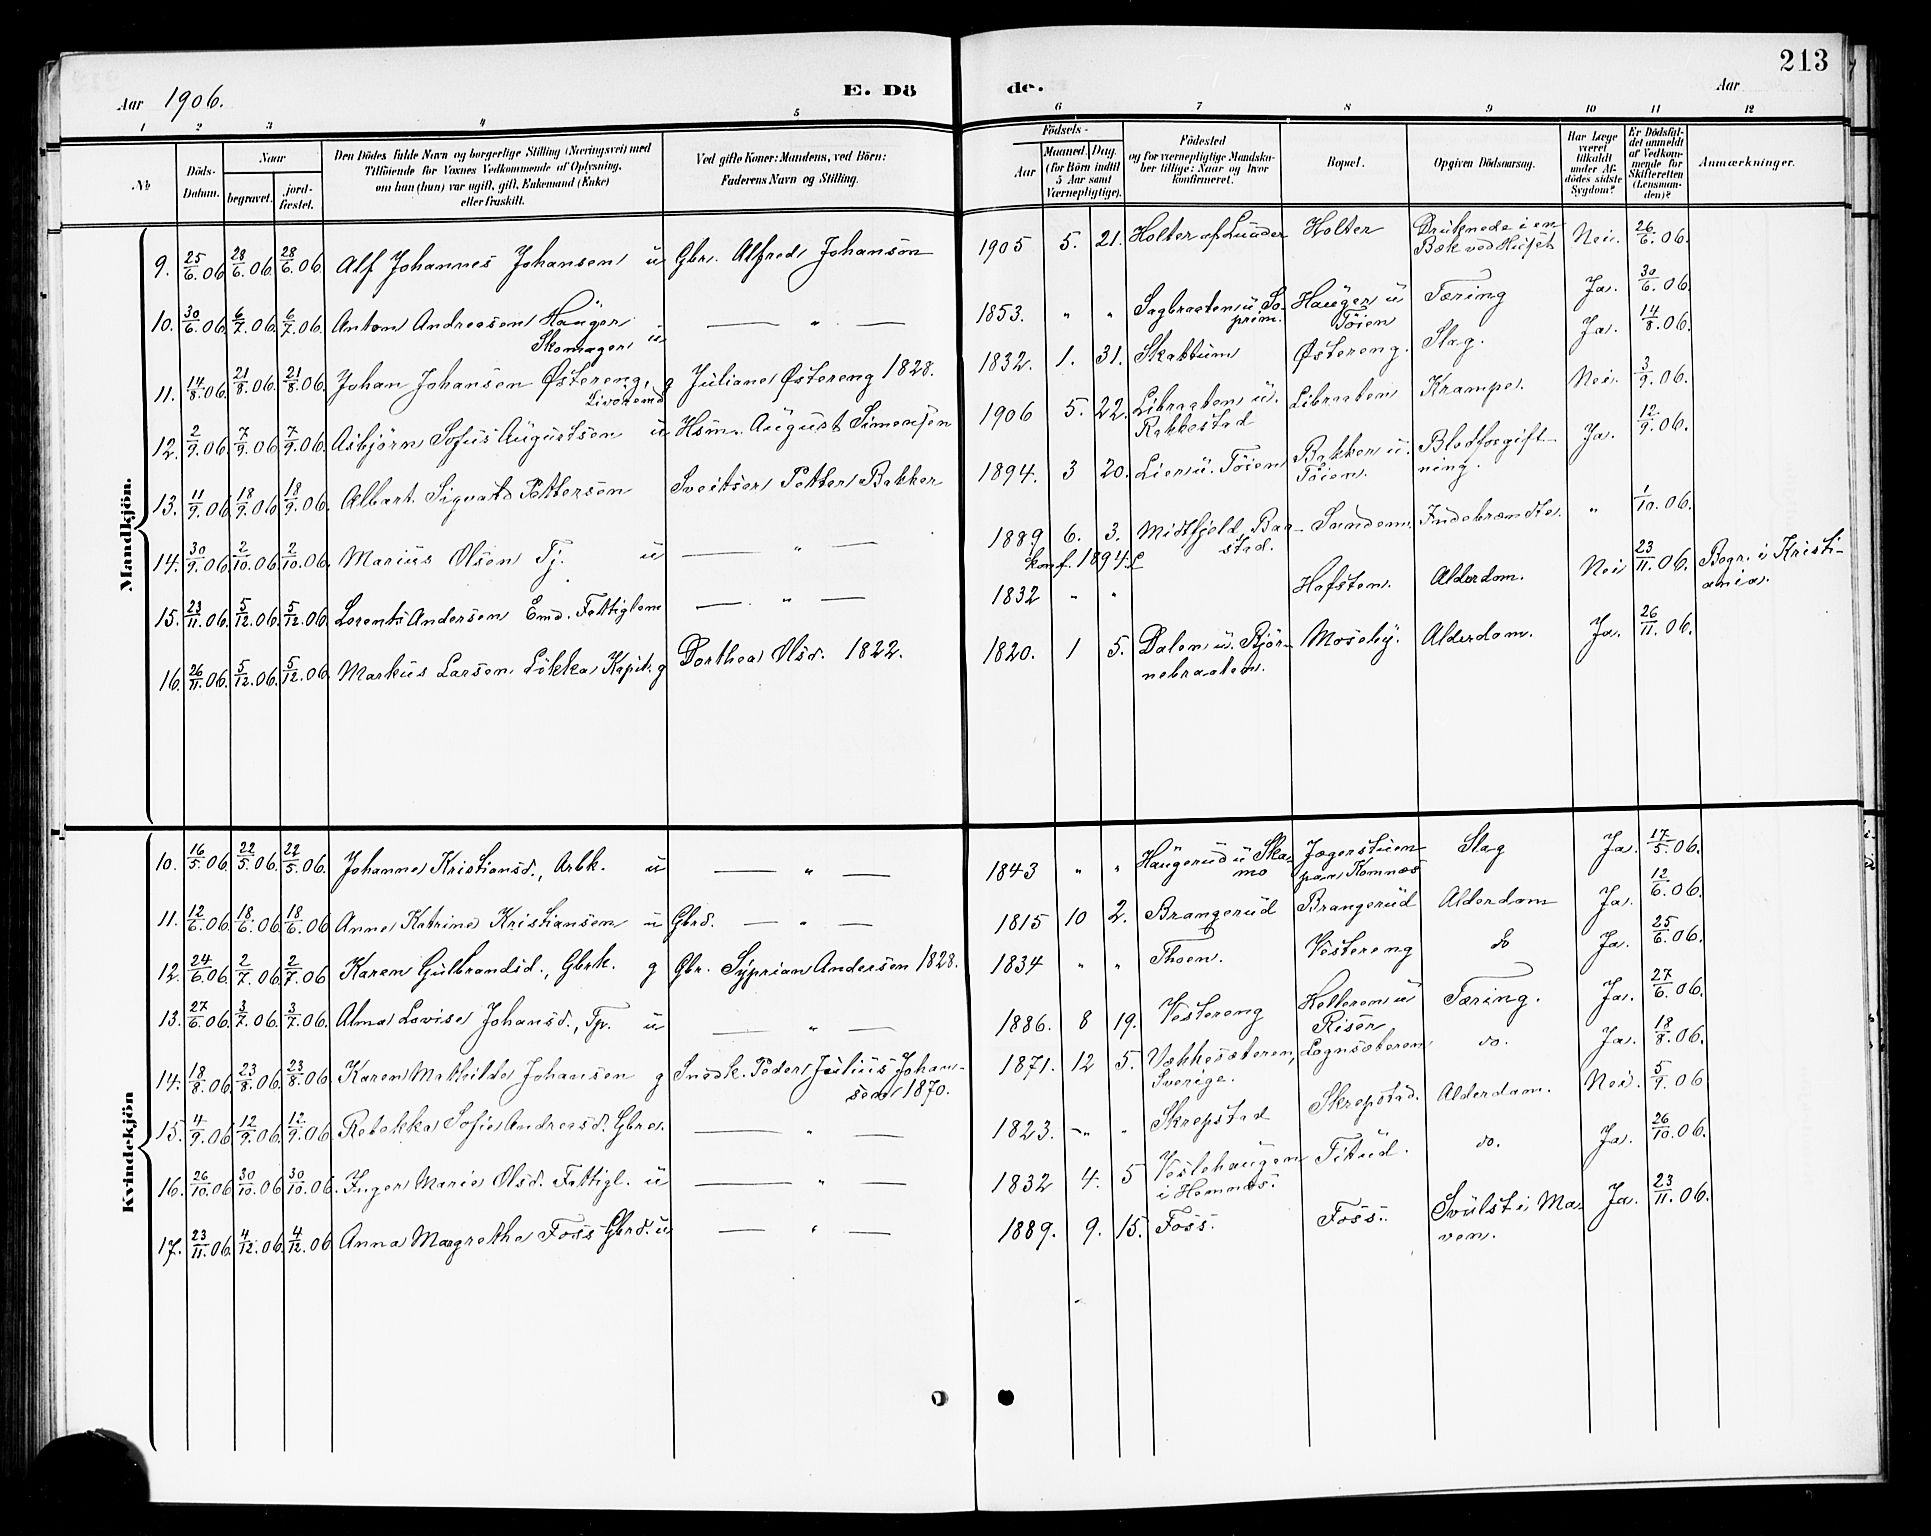 213
Aar 1906. E. Dö de. Aar
1 2 3 4 5 6 7 8 9 10 11 12
№
Döds-Datum.
Naar
begravet.
jord-fæstet.
Den Dödes fulde Navn og borgerlige Stilling (Næringsvei) med
Tilföiende for Voxnes Vedkommende af Oplysning,
om han (hun) var ugift, gift, Enkemand (Enke)
eller fraskilt.
Ved gifte Koner: Mandens, ved Börn:
Faderens Navn og Stilling.
Födsels-
Aar
Maaned. Dag.
(for Börn indtil
5 Aar samt
Værnepligtige).
Födested
og for værnepligtige Mandska-
ber tillige: Naar og hvor
konfirmeret.
Bopæl.
Opgiven Dödsaarsag.
Har Læge
været
tilkaldt
under Af-
dödes sidste
Sygdom?
Er Dödsfal-
det anmeldt
af Vedkom-
mende for
Skifteretten
(Lensman-
den)?
Anmærkninger.
Mandkjön.
9. 25/6.06 28/6.06. 28/6.06. Alf Johannes Johansen u Gbr. Alfred Johanson 1905 5. 21. Holter af Lunder Holter Druknede i en
Bæk ved Nei. 26/6.06.
10. 30/6.06. 6/7.06. 6/7.06. Anton Andreasen Hauger
Skomager u — " — 1853. " " Sagbraaten u.
Hauger u
Töien Tæring Ja. 30/6.06.
11. 14/8.06. 21/8.06. 21/8.06. Johan Johansen Östereng, g
Livöremd Juliane Östereng 1828. 1832. 1. 31. Skattum Östereng. Slag. Ja. 14/8.06.
12. 2/9.06. 7/9.06. 7/9.06. Asbjörn Sofus Augustsen u Hsm. August Simensen 1906 5. 22. Libraaten u.
Rakkestad Libraaten Krampe. Nei. 3/9.06.
13. 11/9.06. 18/9.06. 18/9.06. Albert Sigvard Pettersen Sveitser Petter Bakker 1894. 3 20. Lien u. Töien Bakken u.
Töien. Blodforgift-
ning. Ja. 12/9.06.
14. 30/9.06. 2/10.06. 2/10.06. Marius Olsen Tj. u — " — 1889 6. 3. Midtfjeld, Baa-
stad.
konf. 1894. Sundem. Indebrændte. " 1/10.06.
15. 23/11.06. 5/12.06. 5/12.06. Lorents Andersen Emd. Fattiglem — " — 1832 " " Hofsten. Alderdom. Nei 23/11.06. Begr. i Kristi-
ania.
16. 26/11.06. 5/12.06. 5/12.06. Markus Larsen Lökka Kapit. g Dorthea Olsd. 1822. 1820. 1 5. Dalen u. Björ-
nebraaten. Moseby. Alderdom. Ja. 26/11.06.
Kvindekjön
10. 16/5.06. 22/5.06. 22/5.06. Johanne Kristiansd., Arbk. u — " — 1843 " " Haugerud u Ska-
mo Jægerstuen
paa Komnæs Slag Ja. 17/5.06.
11. 12/6.06. 18/6.06. 18/6.06 Anne Katrine Kristiansen u Gbrd. — " — 1815 10 2. Brangerud Brangerud Alderdom Ja. 12/6.06.
12. 24/6.06. 2/7.06 2/7.06 Karen Gulbrandsd., Gbrk. g Gbr. Syprian Andersen 1828. 1834 " " Thoen. Vestereng do Ja. 25/6.06.
13. 27/6.06. 3/7.06. 3/7.06. Alma Lovise Johansd., Tp. u — " — 1886. 8 19. Vestereng Kelleren u
Risör Tæring. Ja. 27/6.06.
14. 18/8.06. 23/8.06. 23/8.06. Karen Mathilde Johansen g Snedk. Peder Julius Johan-
sen 1870. 1871. 12 5. Vækkesæteren,
Sverige. Lognsæteren do. Ja. 18/8.06.
15. 4/9.06 12/9.06. 12/9.06. Rebekka Sofie Andreasd. Gbre. — " — 1823. " " Skrepstad Skrepstad. Alderdom. Nei. 5/9.06
16. 26/10.06 30/10.06 30/10.06. Inger Marie Olsd. Fattigl. u — " — 1832 4. 5 Veslehaugen
i Hemnæs. Titud. do. Ja. 26/10.06.
17. 23/11.06. 4/12.06. 4/12.06 Anna Margrethe Foss Gbrd. u — " — 1889. 9. 15. Foss. Foss. Svulst i Ma-
ven. Ja. 23/11.06.